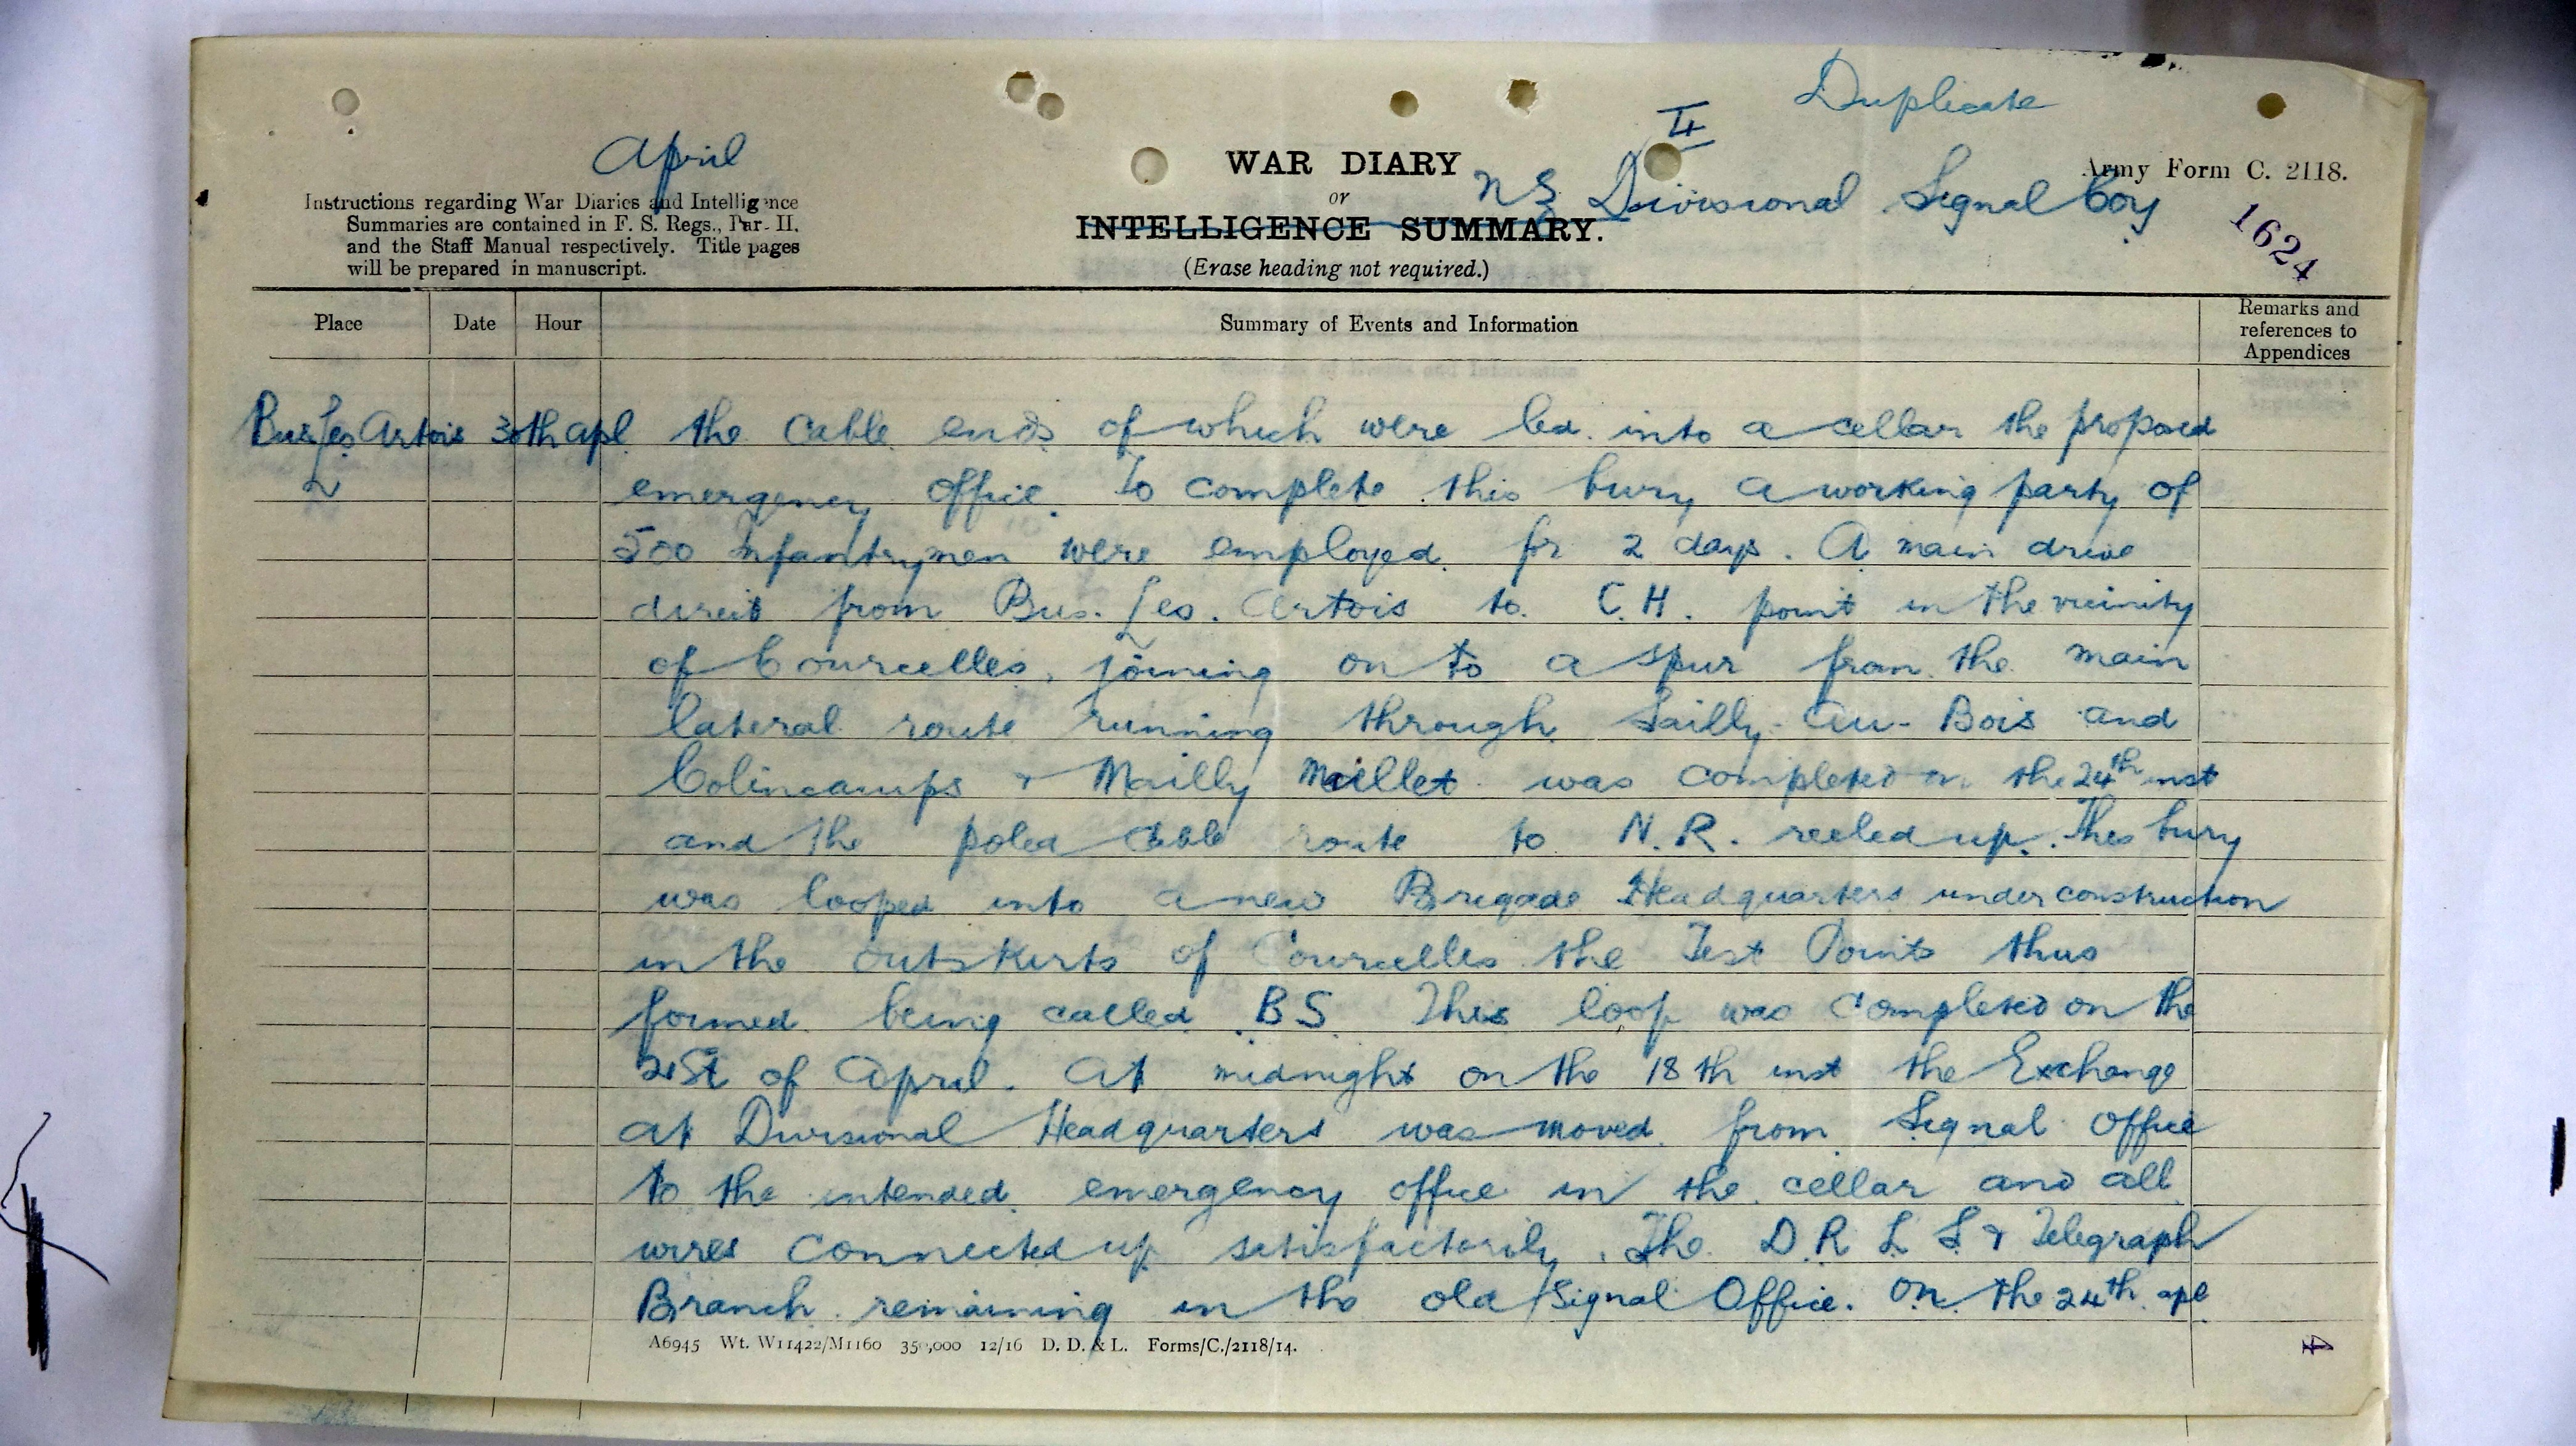 Duplicate
II
April
WAR DIARY
Army Form C. 2118.
or
NZ Divisional Signal Coy
Instructions regarding War Diaries and Intelligence
Summaries are contained in F. S. Regs., Par. II.
and the Staff Manual respectively. Title pages
will be prepared in manuscript.
INTELLIGENCE SUMMARY.
(Erase heading not required.)
1624
Place Date Hour Summary of Events and Information Remarks and
references to
Appendices
Bus Les Artois 30th apl the cable ends of which were led into a cellar the proposed
emergency office. To complete this bury a working party of
500 Infantrymen were employed for 2 days. A main drive
direct from Bus. Les. Artois to C.H. point in the vicinity
of Courcelles, joining on to a spur from the main
lateral route running through Sailly-Au-Bois and
Colincamps & Mailly Maillet was completed on the 24th inst
and the poled cable route to N.R. reeled up. This bury
was looped into a new Brigade Headquarters under construction
in the outskirts of Courcelles the Test Points thus
formed being called BS This loop was completed on the
21st of April. At midnight on the 18th inst the Exchange
at Divisional Headquarters was moved from Signal Office
to the intended emergency office in the cellar and all
wires connected up satisfactorily. The D R L S & Telegraph
Branch remaining in the old Signal Office. On the 24th apl
A6945 Wt. W11422/M1160 350,000 12/16 D. D. & L. Forms/C./2118/14.
4